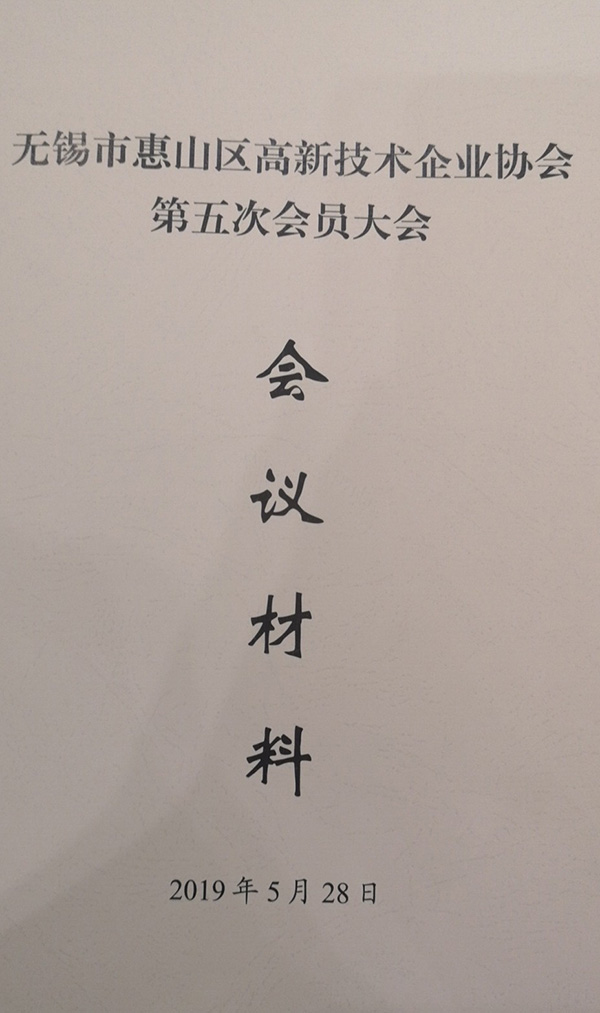 无锡市惠山区高新技术企业协会
第五次会员大会
会
议
材
料
2019年5月28日